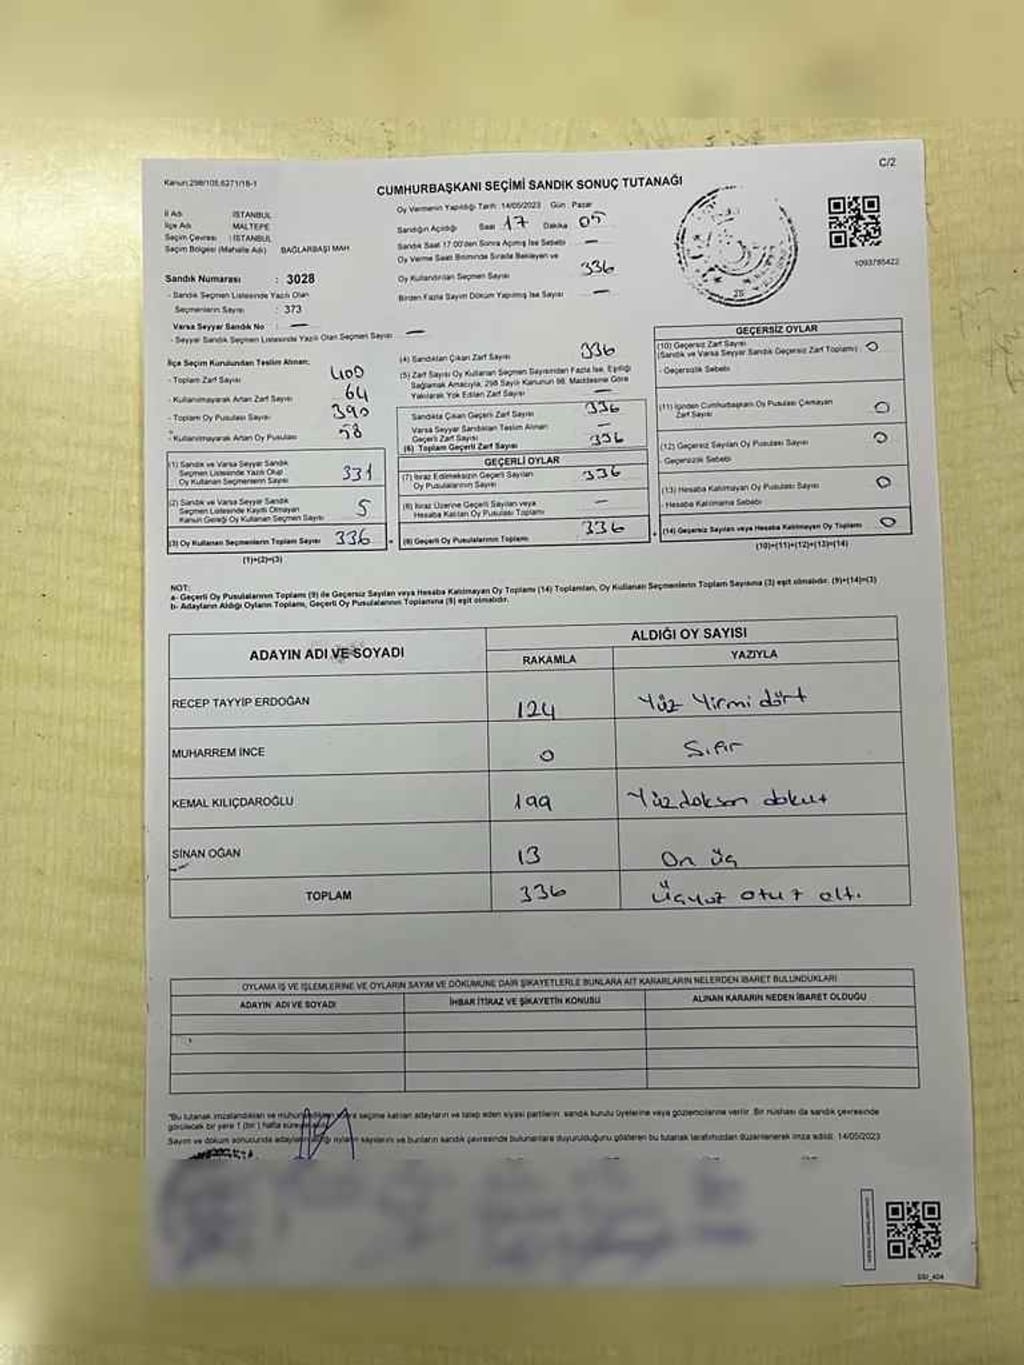 Kanun:298/105,6271/18-1
C/2
CUMHURBAŞKANI SEÇİMİ SANDIK SONUÇ TUTANAĞI
İl Adı : İSTANBUL
İlçe Adı : MALTEPE
Seçim Çevresi : İSTANBUL
Seçim Bölgesi (Mahalle Adı) : BAĞLARBAŞI MAH
Sandık Numarası : 3028
- Sandık Seçmen Listesinde Yazılı Olan
Seçmenlerin Sayısı : 373
Varsa Seyyar Sandık No : —
- Seyyar Sandık Seçmen Listesinde Yazılı Olan Seçmen Sayısı : —
Oy Vermenin Yapıldığı Tarih :14/05/2023 Gün : Pazar
Sandığın Açıldığı Saat : 17 Dakika : 05
Sandık Saat 17:00'den Sonra Açılmış İse Sebebi : —
Oy Verme Saati Bitiminde Sırada Bekleyen ve
Oy Kullandırılan Seçmen Sayısı 336
Birden Fazla Sayım Döküm Yapılmış İse Sayısı : —
1093785422
İlçe Seçim Kurulundan Teslim Alınan;
- Toplam Zarf Sayısı : 400
- Kullanılmayarak Artan Zarf Sayısı : 64
- Toplam Oy Pusulası Sayısı : 390
- Kullanılmayarak Artan Oy Pusulası : 58
(1) Sandık ve Varsa Seyyar Sandık
Seçmen Listesinde Yazılı Olup
Oy Kullanan Seçmenlerin Sayısı 331
(2) Sandık ve Varsa Seyyar Sandık
Seçmen Listesinde Kayıtlı Olmayan
Kanun Gereği Oy Kullanan Seçmen Sayısı 5
(3) Oy Kullanan Seçmenlerin Toplam Sayısı 336
(1)+(2)=(3)
(4) Sandıktan Çıkan Zarf Sayısı : 336
(5) Zarf Sayısı Oy Kullanan Seçmen Sayısından Fazla İse, Eşitliği
Sağlamak Amacıyla, 298 Sayılı Kanunun 98. Maddesine Göre
Yakılarak Yok Edilen Zarf Sayısı : —
Sandıkta Çıkan Geçerli Zarf Sayısı : 336
Varsa Seyyar Sandıktan Teslim Alınan
Geçerli Zarf Sayısı : —
(6) Toplam Geçerli Zarf Sayısı : 336
GEÇERLİ OYLAR
(7) İtiraz Edilmeksizin Geçerli Sayılan
Oy Pusulalarının Sayısı : 336
(8) İtiraz Üzerine Geçerli Sayılan veya
Hesaba Katılan Oy Pusulası Toplamı : —
(9) Geçerli Oy Pusulalarının Toplamı : 336
GEÇERSİZ OYLAR
(10) Geçersiz Zarf Sayısı
(Sandık ve Varsa Seyyar Sandık Geçersiz Zarf Toplamı) : 0
- Geçersizlik Sebebi
(11) İçinden Cumhurbaşkanı Oy Pusulası Çıkmayan
Zarf Sayısı : 0
(12) Geçersiz Sayılan Oy Pusulası Sayısı : 0
- Geçersizlik Sebebi
(13) Hesaba Katılmayan Oy Pusulası Sayısı : 0
- Hesaba Katılmama Sebebi
(14) Geçersiz Sayılan veya Hesaba Katılmayan Oy Toplamı : 0
(10)+(11)+(12)+(13)=(14)
NOT:
a- Geçerli Oy Pusulalarının Toplamı (9) ile Geçersiz Sayılan veya Hesaba Katılmayan Oy Toplamı (14) Toplamları, Oy Kullanan Seçmenlerin Toplam Sayısına (3) eşit olmalıdır. (9)+(14)=(3)
b- Adayların Aldığı Oyların Toplamı, Geçerli Oy Pusulalarının Toplamına (9) eşit olmalıdır.
ADAYIN ADI VE SOYADI ALDIĞI OY SAYISI
RAKAMLA YAZIYLA
RECEP TAYYİP ERDOĞAN 124 Yüz Yirmi dört
MUHARREM İNCE 0 Sıfır
KEMAL KILIÇDAROĞLU 199 Yüzdoksan dokuz
SİNAN OĞAN 13 On üç
TOPLAM 336 Üçyüz otuz altı
OYLAMA İŞ VE İŞLEMLERİNE VE OYLARIN SAYIM VE DÖKÜMÜNE DAİR ŞİKAYETLERLE BUNLARA AİT KARARLARIN NELERDEN İBARET BULUNDUKLARI
ADAYIN ADI VE SOYADI İHBAR İTİRAZ VE ŞİKAYETİN KONUSU ALINAN KARARIN NEDEN İBARET OLDUĞU
"Bu tutanak imzalandıktan ve seçime katılan adayların ve talep eden siyasi partilerin sandık kurulu üyelerine veya gözlemcilerine verilir. Bir nüshası da sandık çevresinde
görülecek bir yere 1 (bir) hafta
Sayım ve döküm sonucunda adayların aldığı oyların sayılarını ve bunların sandık çevresinde bulunanlara duyurulduğunu gösteren bu tutanak tarafımızdan düzenlenerek imza edildi. 14/05/2023